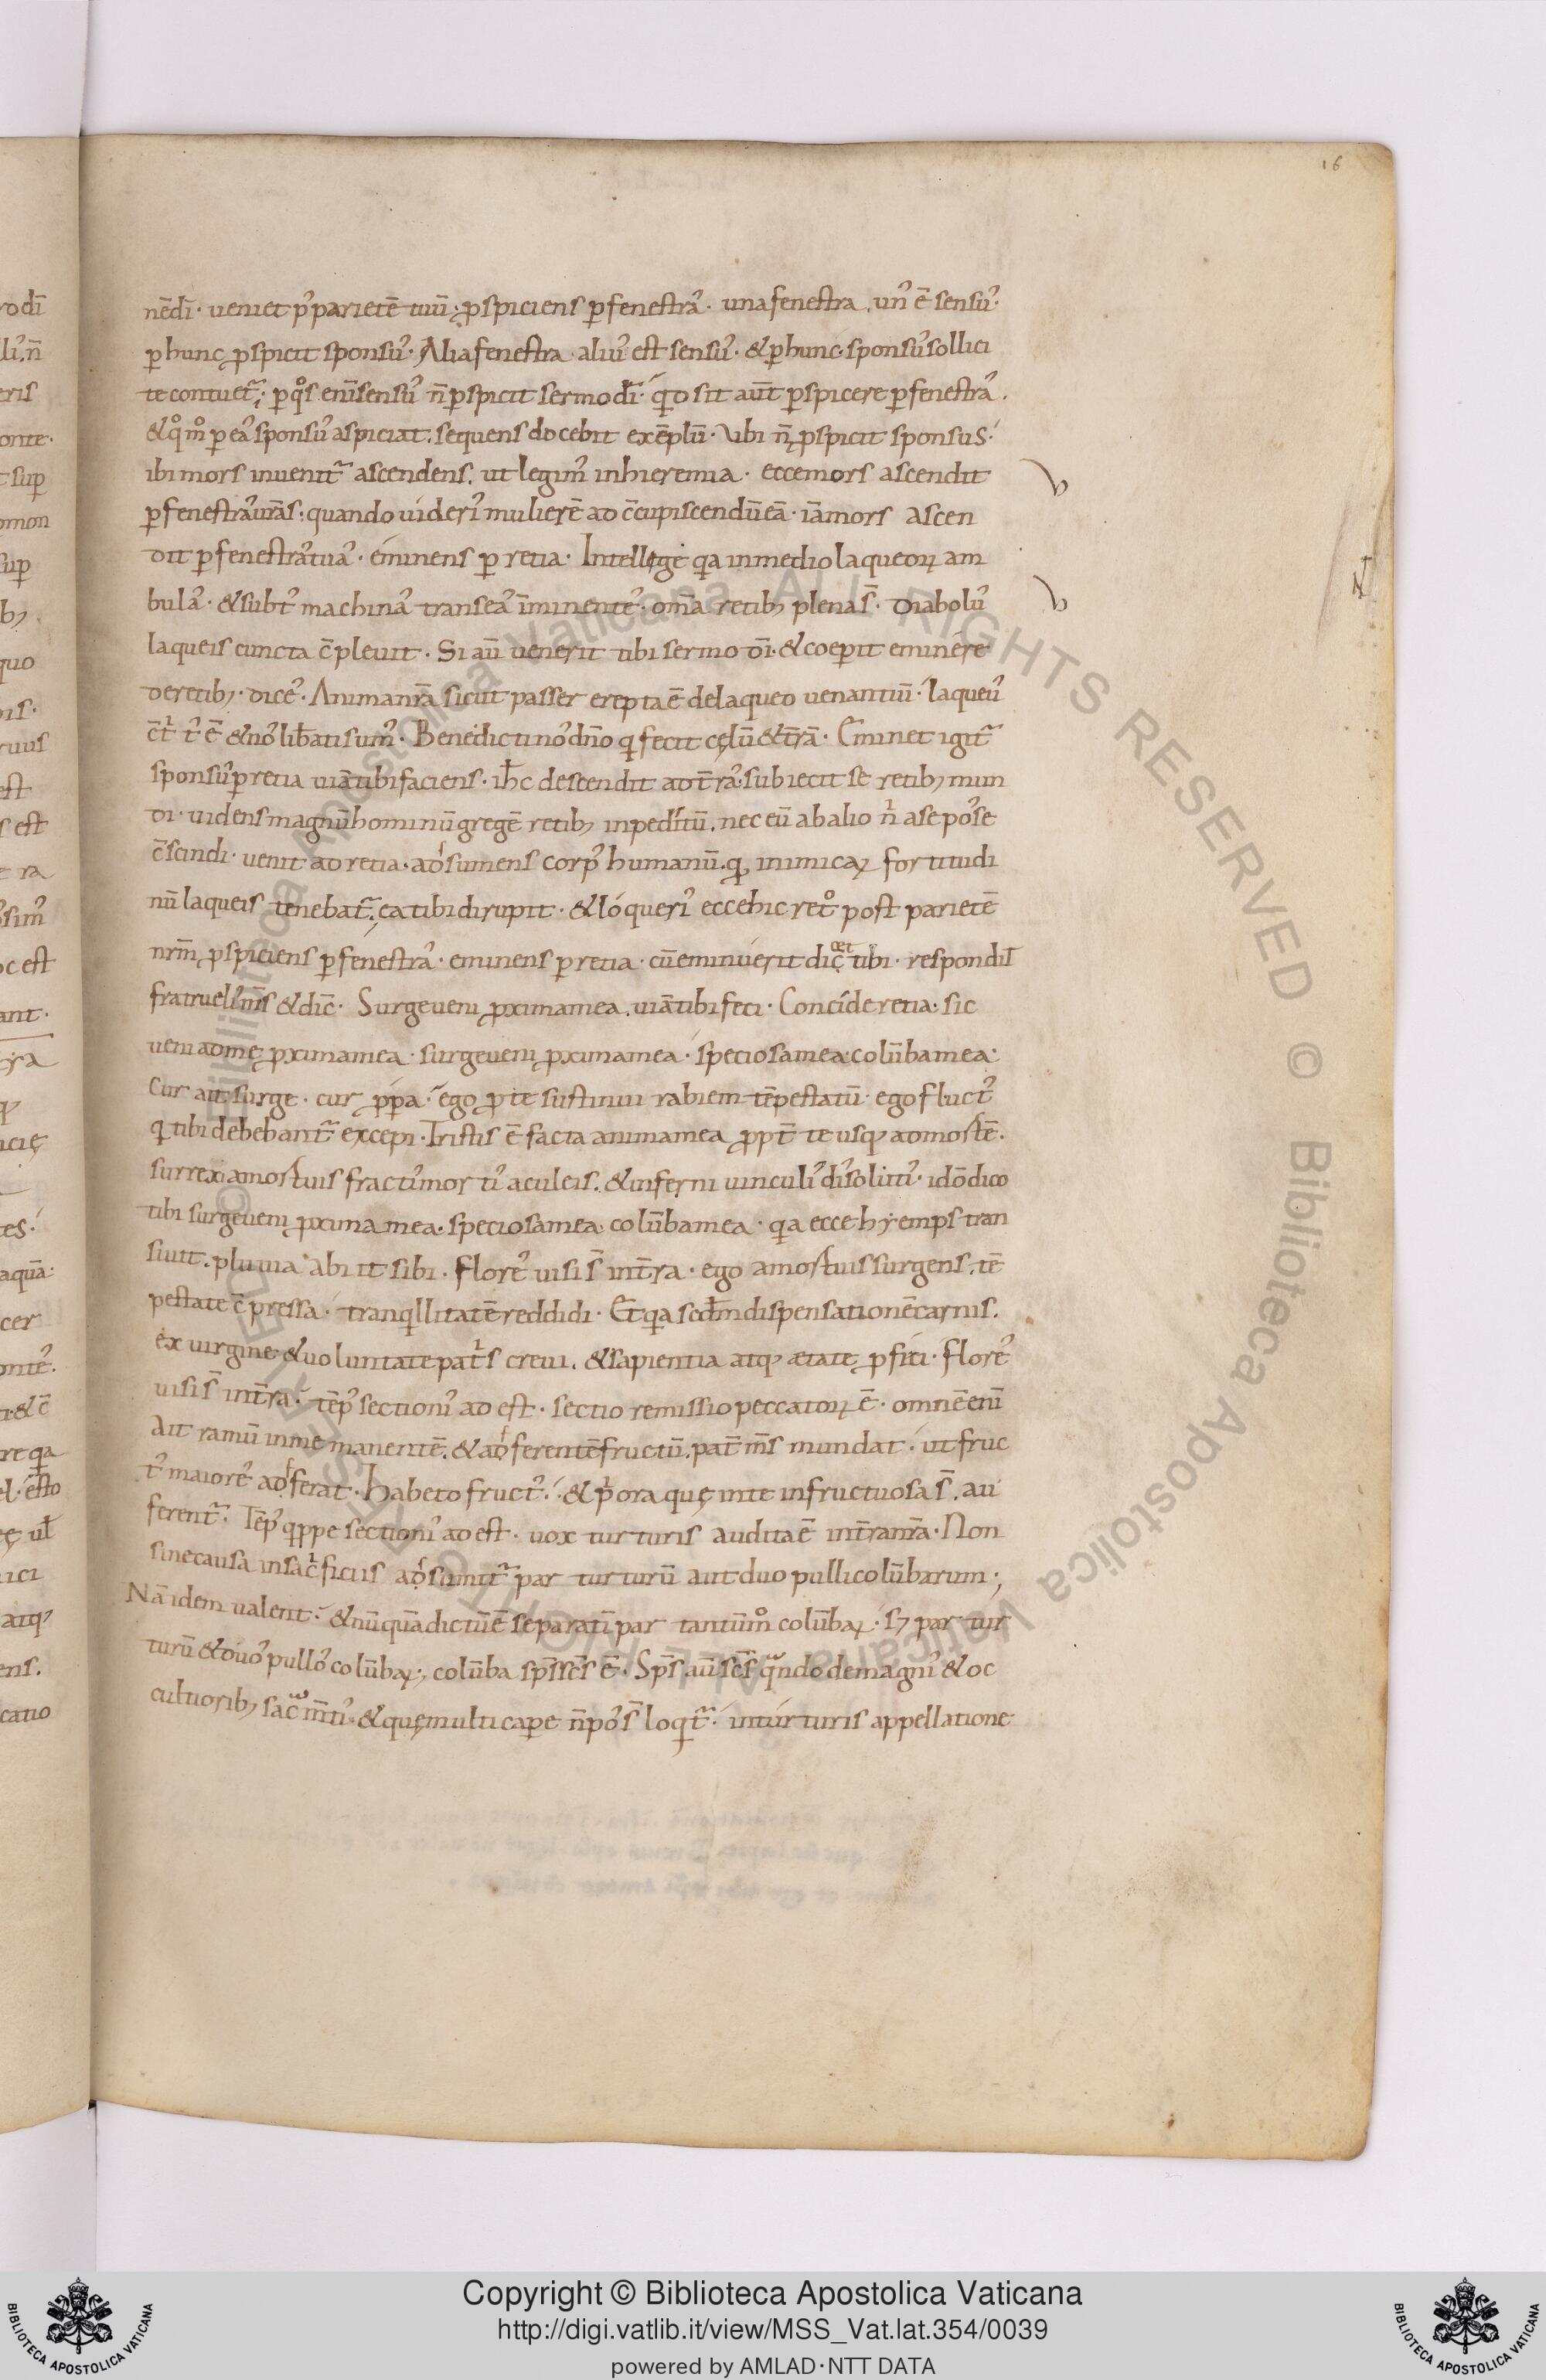 16
nēdī· ueniet p᷒parietē tuū; ꝓspiciens ꝑfenestra᷒· una fenestra, un᷒ ē sensu᷒·
ꝑhunc ꝓspicit sponsu᷒· Alia fenestra aliu᷒ est sensu᷒· &ꝑhunc sponsu᷒ sollici
te contuet᷒; ꝑ qͦs enī sensu᷒ n̄ ꝓspicit sermo dī· qͥd sit aūt ꝓspicere ꝑfenestra᷒.
&qͦmͦ ꝑ ea᷒ sponsu᷒ aspiciat, sequens docebit exēplū· Ubi n̄ ꝓspicit sponsus·
ibi mors inuenit᷒ ascendens, ut legim᷒ inhieremia· ecce mors ascendit
ꝑfenestra᷒ urās; quando uideri᷒ mulierē ad c̄cupiscendū eā· iā mors ascen
dit ꝑfenestra᷒ tua᷒· eminens ꝑ retia· Intellege qa inmedio laqueoꝝ am
bula᷒· &subt᷒ machina᷒ transea᷒ īminente᷒· om̄a retib; plena s̄· Diabolu᷒
laqueis cuncta c̄pleuit· Si aū uenerit tibi sermo dī· &coeperit eminere
deretib;· dice᷒· Anima nrā sicut passer erepta ē delaqueo uenantiū· laqueu᷒
c̄tͥt᷒ ē &no᷒ lib̄ati sum᷒· Benedicti no᷒ dn̄o qͥ fecit cęlū &t̄rā· Eminet igit᷒
sponsu᷒ ꝑretia uiā tibi faciens· ih̄c descendit ad t̄ra᷒· subiecit se retib; mun
di· uidens magnū hominū gregē retib; inpeditū, nec eū abalio nͥ ase po᷒se
c̄scindi· uenit ad retia· adsumens corp᷒ humanū· qđ inimicaꝝ fortitudi
nū laqueis tenebat᷒; ea tibi dirupit· &loqueri᷒ ecce hic retͦ post parietē
nrm̄ ꝓspiciens ꝑfenestra᷒· eminens ꝑretia· cū eminuerit dic&ͭ tibi· respondit
fratrueli᷒ m̄s &dic̄· Surge ueni ꝓxima mea, uiā tibi feci· Concide retia· sic
ueni adme ꝓxima mea· surge ueni ꝓxima mea· speciosa mea· colūba mea·
Cur ait, surge· cur ꝓpa· ego ꝓ te sustinui rabiem tēpestatū· ego fluct᷒
qͥ tibi debebant᷒ excepi· Tristis ē facta anima mea ꝓpt̄ te usq; admortē·
surrexi amortuis fracti᷒ morti᷒ aculeis, &inferni uinculi᷒ di᷒soluti᷒· idō dico
tibi surge ueni ꝓxima mea· speciosa mea· colūba mea· qa ecce hyemps tran
siuit, pluuia abiit sibi· flore᷒ uisi s̄ int̄ra· ego amortuis surgens, tē
pestate c̄pressa· tranqͥllitatē reddidi· Et qa scdm̄ dispensationē carnis,
ex uirgine &uoluntate patͥs creui, &sapientia atq; ętate ꝓfeci· flore᷒
uisi s̄ int̄ra· tēp᷒ sectioni᷒ adest· sectio remissio peccatoꝝ ē· omnē enī
Ait ramū inme manentē, &adferentē fructū, pat̄ m̄s mundat· ut fruc
t᷒ maiore᷒ adferat· Habeto fruct᷒· &pͥora quę inte infructuosa s̄, au
ferent᷒· Tēp᷒ qͥppe sectioni᷒ adest· uox turturis audita ē int̄ra nrā· Non
sine causa insacͥficiis adsumit᷒ par turturū aut duo pulli colūbarum;
Nā idem ualent· &nūquā dictū ē separatī par tantūmͦ colūbaꝝ· sꝫ par tur
turū &duo᷒ pullo᷒ colūbaꝝ; colūba sp̄s sc̄s ē· Sp̄s aū sc̄s qͣndo demagni᷒ &oc
cultiorib; sacͣm̄ti᷒· &quę multi capere n̄ po᷒s̄ loqͥt᷒· inturturis appellatione
Copyright © Biblioteca Apostolica Vaticana
http://digi.vatlib.it/view/MSS_Vat.lat.354/0039
powered by AMLAD·NTT DATA